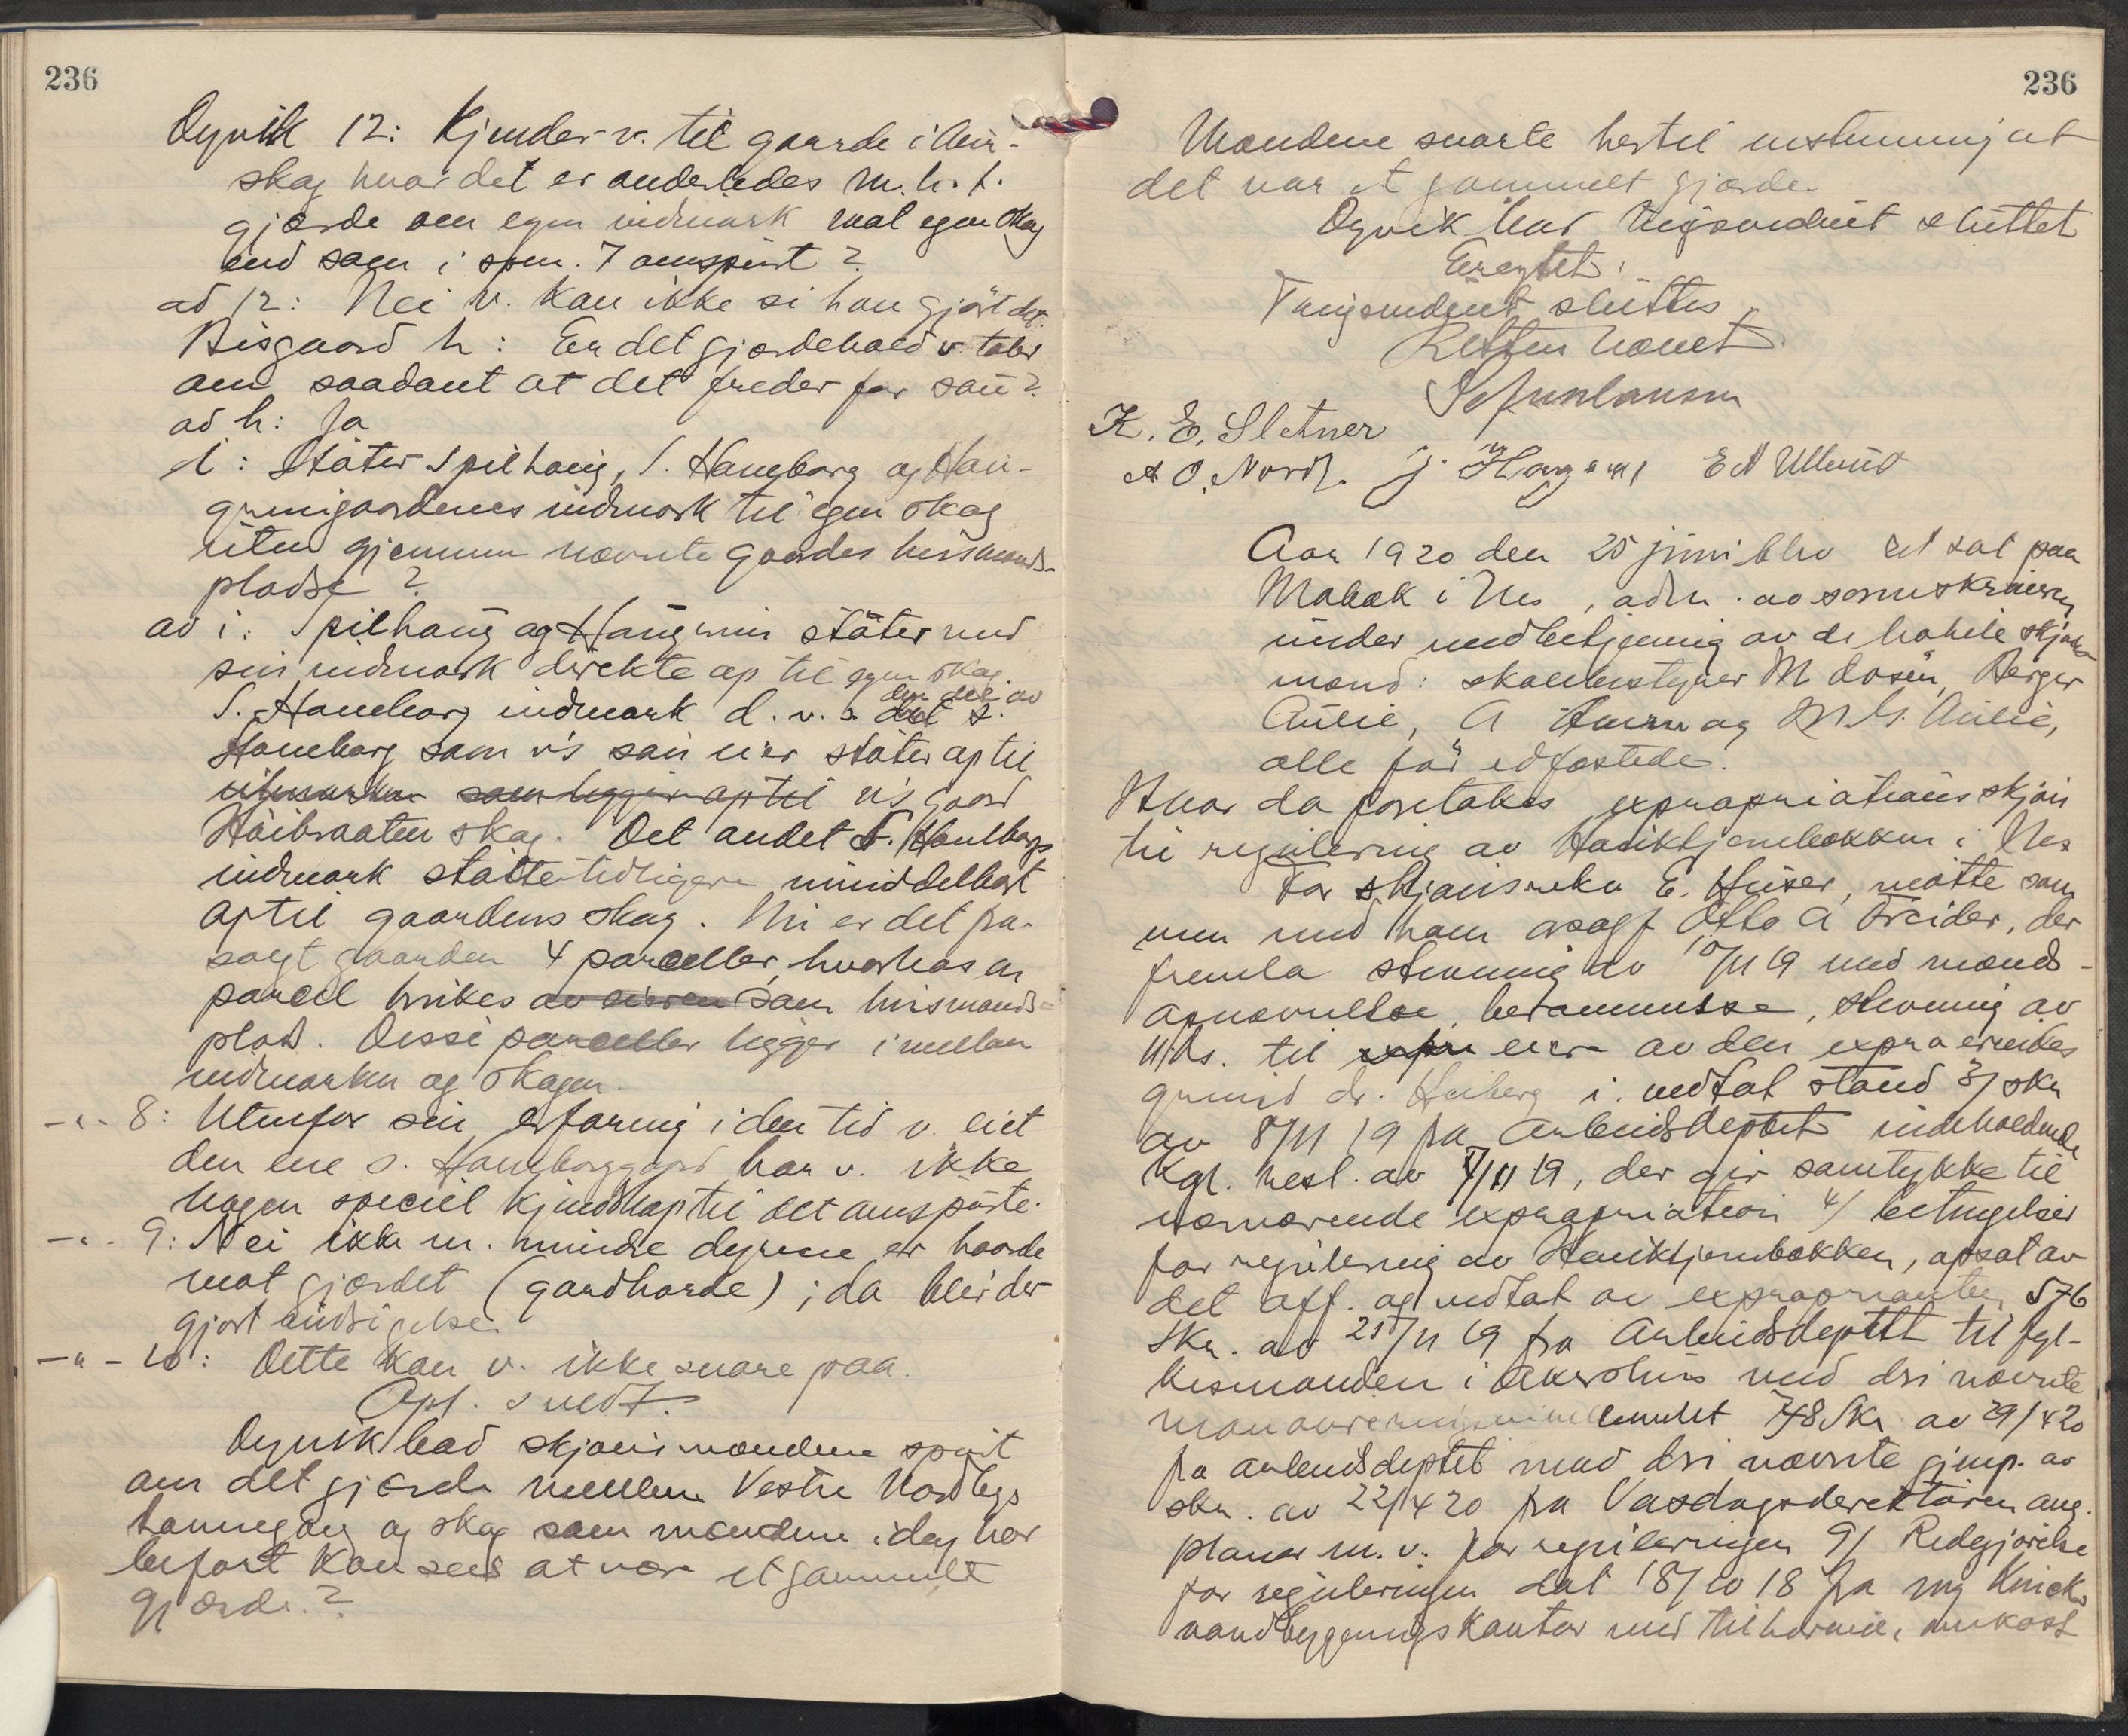 236
Dyvik 12: Kjender v. til gaarde i Aur-
skog hvor det er anderledes m. h. t.
gjærde om egen indmark mot egen skog
end som i spm. 7 omspurt?
ad 12: Nei v. kan ikke si han gjør det.
Bisgaard h: Er det gjærdehold v. taler
om saadant at det freder for sau?
ad h: Ja
i: Støter Spilhaug, S. Haneborg og Hau-
grimgaardenes indmark til egen skog
uten gjennem nævnte gaardes husmands-
pladse?
ad i: Spilhaug og Haugrim støter med
sin indmark direkte op til egen skog.
S. Haneborg indmark d. v. s. den del av S.
Haneborg som v's søn eier støter op til
utmarken som ligger op til v's gaard
Høibraaten skog. Det andet S. Haneborgs
indmark støtte tidligere umiddelbart
op til gaardens skog. Nu er det fra-
solgt gaarden 4 parceller, hvorhos en
parcel brukes av eieren som husmands-
plads. Disse parceller ligger imellem
indmarken og skogen.
-"- 8: Utenfor sin erfaring i den tid v. eiet
den ene S. Haneborggaard har v. ikke
nogen speciel kjendskap til det omspurte.
-"- 9: Nei ikke m. mindre dyrene er haarde
mot gjærdet (gardharde); da blei der
gjort indsigelse.
-"- 10: Dette kan v. ikke svare paa.
Opl. vedt.
Dyvik bad skjønsmændene spurt
om det gjærde mellem Vestre Nordbys
havnegang og skog som mændene idag har
befart kan sees at være et gammelt
gjærde.?
236
Mændene svarte hertil enstemmig at
det var et gammelt gjærde.
Dyvik har tingsvidnet sluttet
Tingsvidnet sluttes
Retten hævet
K. E. Sletner
A O. Nordl. J. Hagen E A Ullerud
Aar 1920 den 25 juni blev ret sat paa
i Nes, adm. av sorenskriveren
under medbetjening av de skjøns-
mænd: skolebestyrer M Berger
Aulie, A og M. G. Aulie,
alle før edfæstede.
Hvor da foretokes expropriationsskjøn
til regulering av Hauktjernbækken i Nes
For skjønsrekv. E. Huser, møtte sam-
men med ham o.r.sagf. Otto A Treider, der
fremla stevning av 10/11 19 med mænds-
opnævnelse, berammelse, stevning av
til eier av den
grund dr. Heiberg i vedtat stand 3/ skr.
av 8/11 19 fra Arbeidsdeptet indeholdende
kgl. resl. av 7/11 19, der gir samtykke til
nærværende expropriation 4/ betingelser
for regulering av Hauktjernbækken, opsat av
det off. og vedtat av exproprianten 5-6
Skr. av 25/11 19 fra Arbeidsdeptet til fyl-
kesmanden i Akershus med deri nævnte
7-8 Skr. av 29/4 20
fra arbeidsdeptet med deri nævnte gjenp. av
skr. av 22/4 20 fra Vasdragsdirektøren ang.
planer m. v. for reguleringen 9/ Redegjørelse
for reguleringen dat 18/10 18 fra ing Kincks
vandbygningskontor med tilhørende omkost